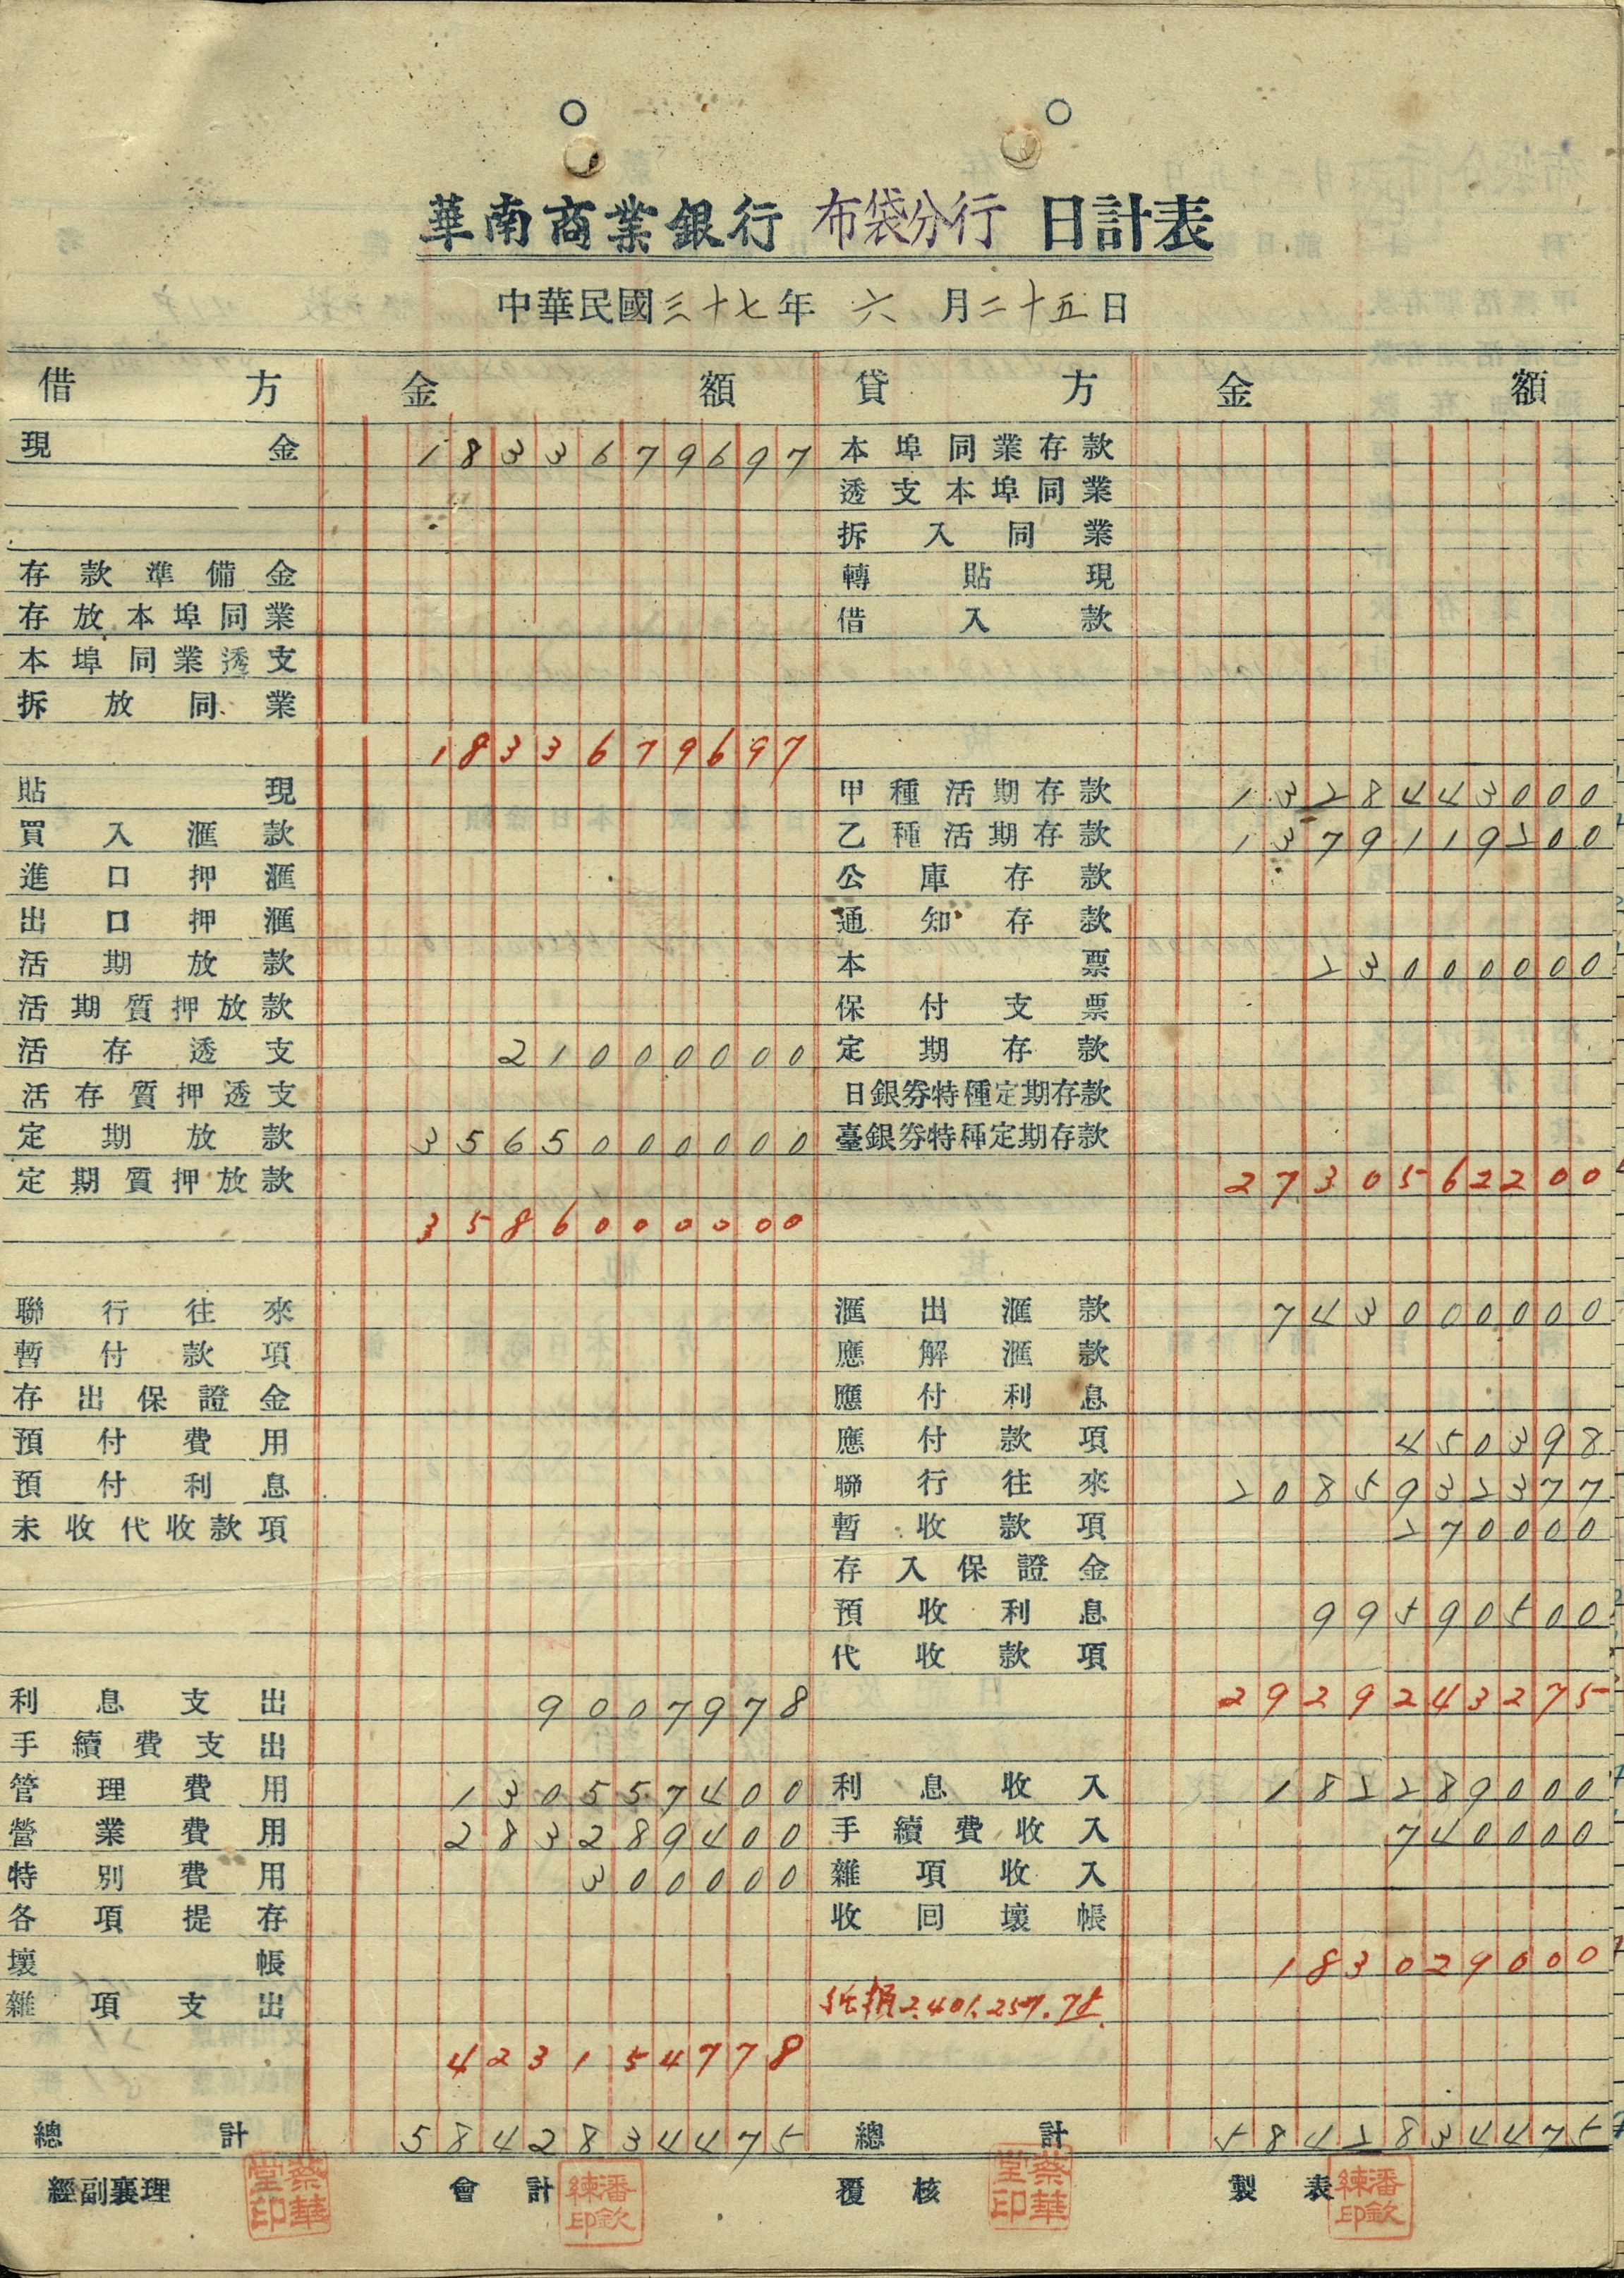 華南商業銀行 布袋分行 日計表
中華民國三十七年 六 月二十五日
借方 金額 貸方 金額
現金 1833679697 本埠同業存款
透支本埠同業
拆入同業
存款準備金 轉貼現
存放本埠同業 借入款
本埠同業透支
拆放同業
1833679697
貼現 甲種活期存款 1328443000
買入滙款 乙種活期存款 1379119200
進口押滙 公庫存款
出口押滙 通知存款
活期放款 本票 23000000
活期質押放款 保付支票
活存透支 21000000 定期存款
活存質押透支 日銀券特種定期存款
定期放款 3565000000 臺銀券特種定期存款
定期質押放款 2730562200
3586000000
聯行往來 滙出滙款 743000000
暫付款項 應解滙款
存出保證金 應付利息
預付費用 應付款項 450398
預付利息 聯行往來 2085932377
未收代收款項 暫收款項 270000
存入保證金
預收利息 99590500
代收款項
利息支出 9007978 2929243275
手續費支出
管理費用 130557400 利息收入 182289000
營業費用 283289400 手續費收入 740000
特別費用 300000 雜項收入
各項提存 收回壞帳
壞帳 183029000
雜項支出 純損2,401,257.78
423154778
總計 5842834475 總計 5842834475
經副襄理 蔡華堂印 會計 潘欽練印 覆核 蔡華堂印 製表 潘欽練印